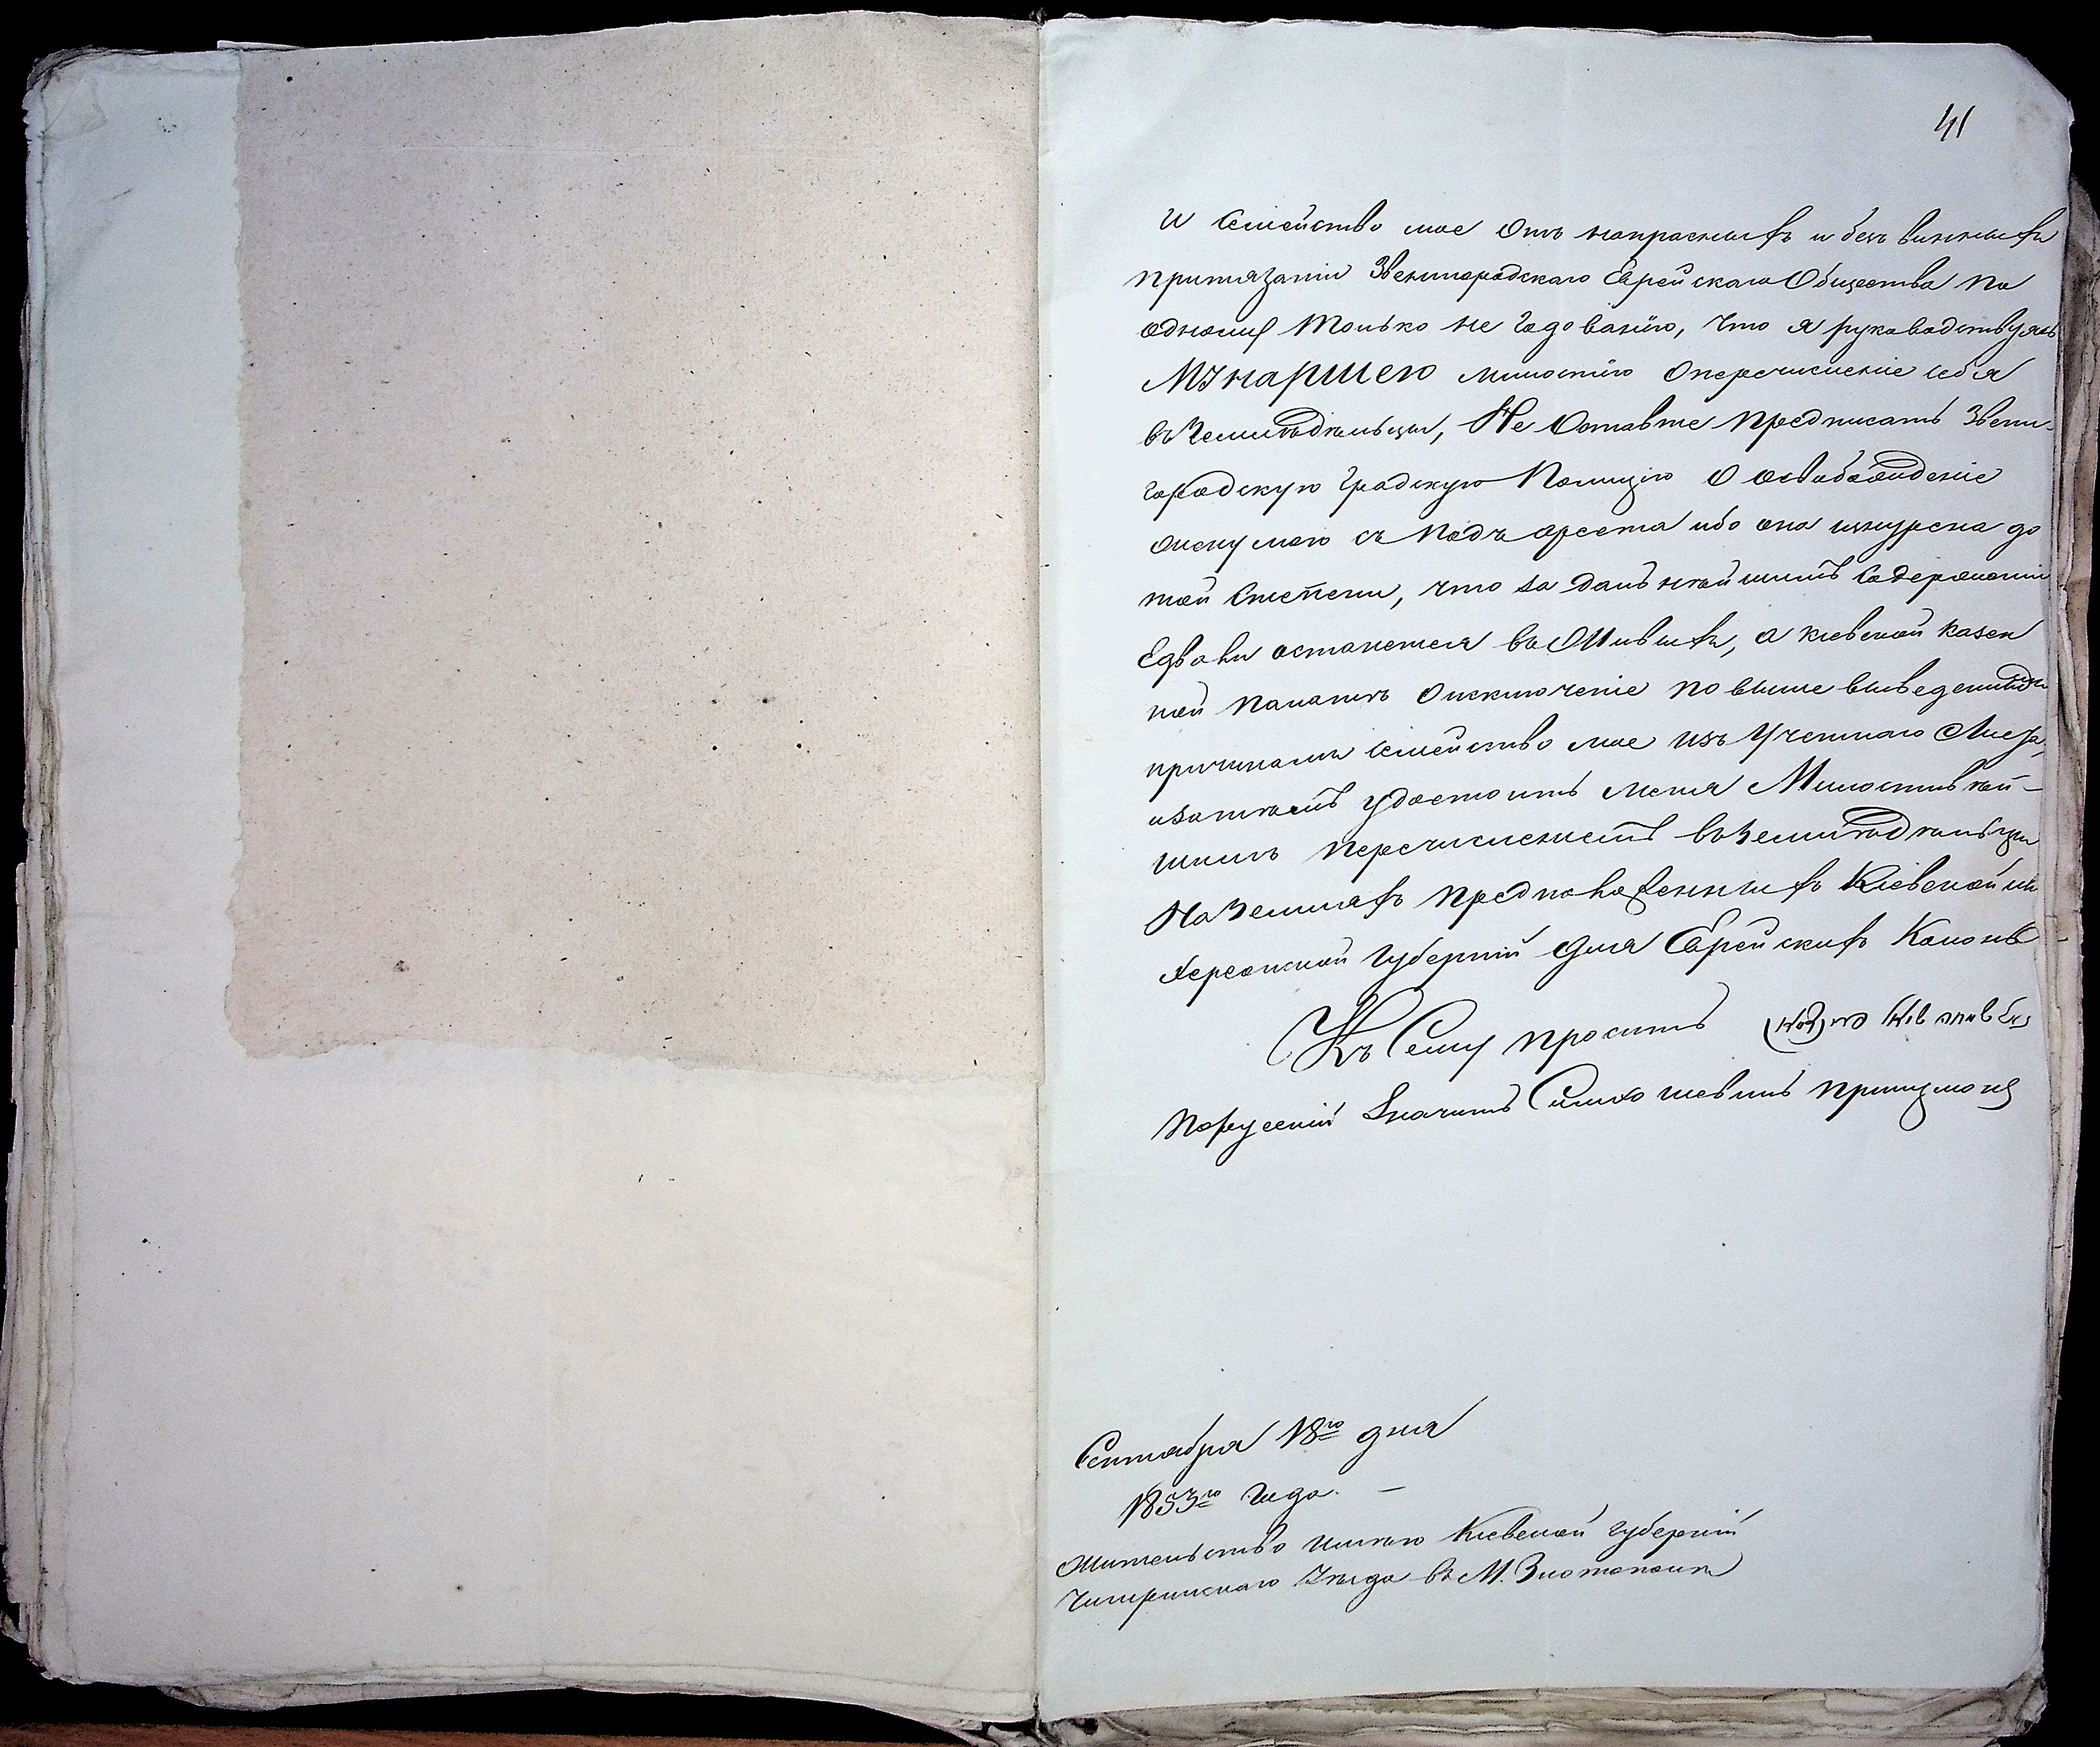 41
и семейство мое отъ напрасныхъ и безъ винныхъ
притязаніи Звенигородскаго Еврейскаго Общества по
одному только не годованію, что я руководствуясь
Монаршею милостію оперечисленіе себя
въ Земледѣльцы, Не Оставте предписать Звени-
городскую градскую Полицію О освобождение
опску мою съ подъ ареста ибо она изнурена до
той степени, что за дальнѣйшимъ Содержаніи
Едвали останется въ Живыхъ, а кіевской казен
ной палатѣ Оисключеніе по выше выведеннымъ
причинамъ семейство мое изъ Учетнаго
изатѣмъ удостоить меня Милостивѣй-
шимъ перечисленіемъ въ Земледѣльцы
На Земляхъ предположенныхъ Кіевской или
Херсонской губерніи для Еврейскихъ Колонѣ
Къ Сему проситъ
Порусскій Значитъ
Сентября 18го дня
1853го года. –
Жительство имѣю Кіевской губерніи
Чигринскаго Уѣзда въ М. Златополѣ